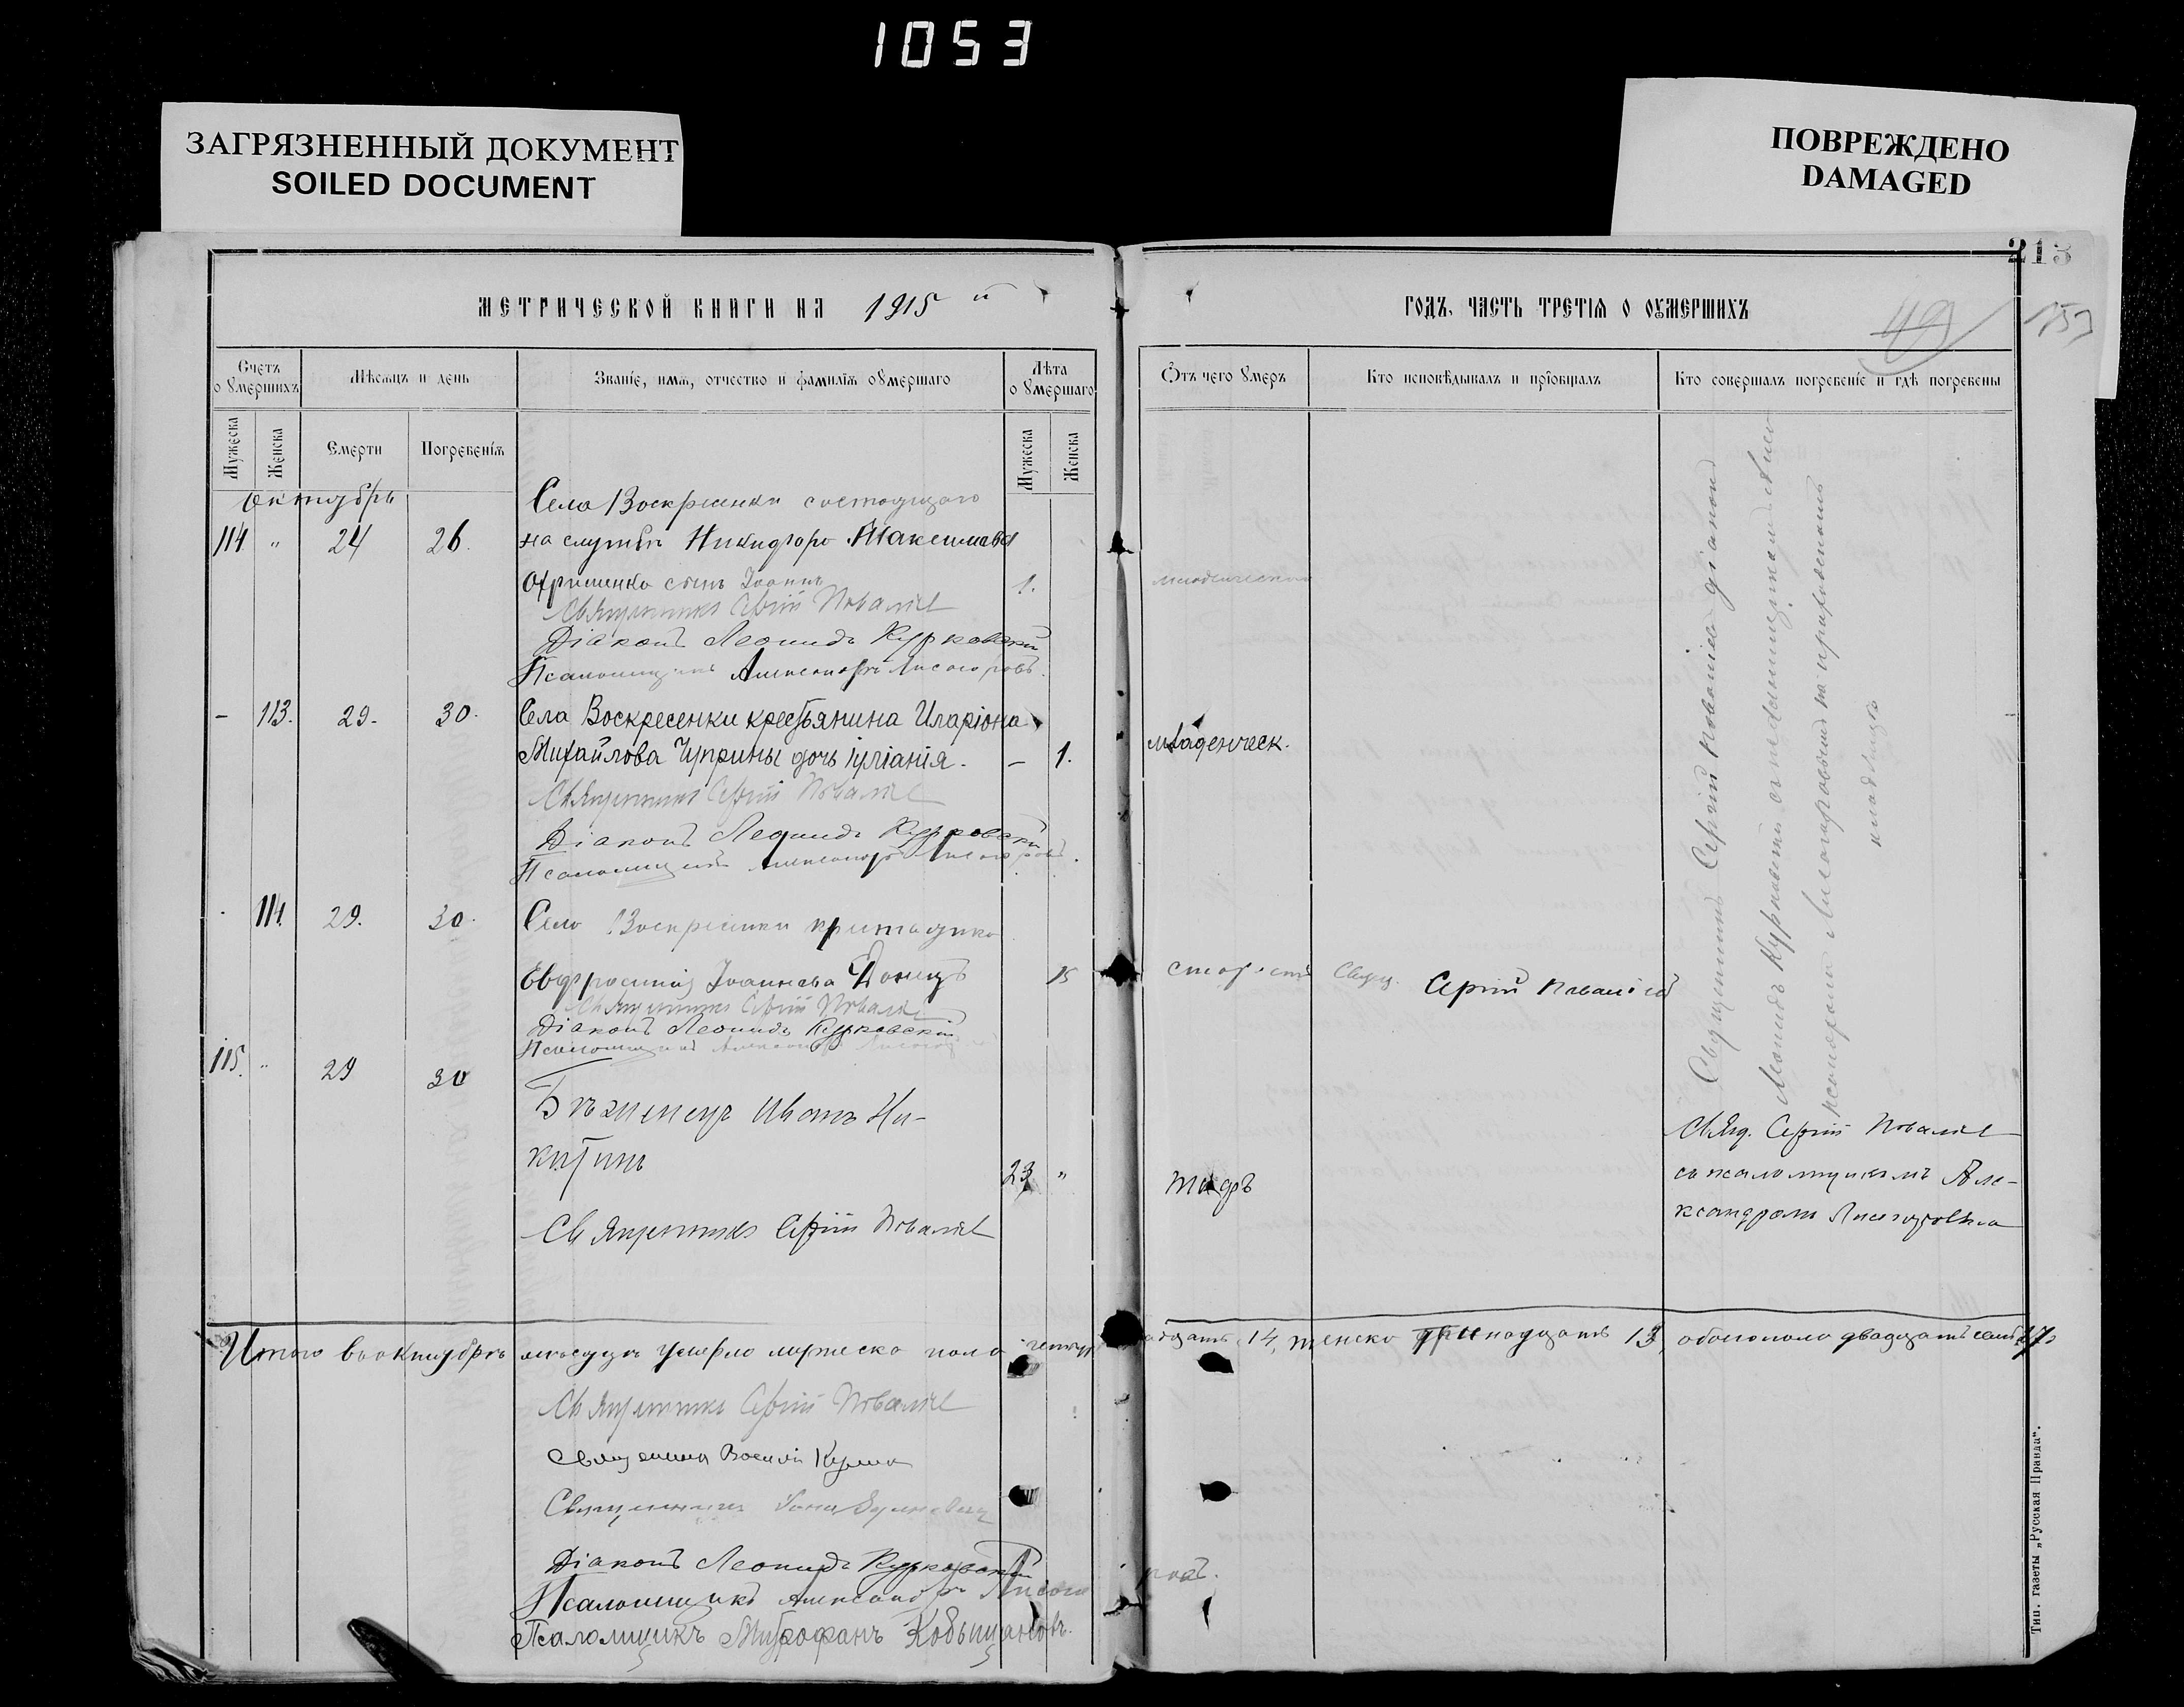 1053
ЗАГРЯЗНЕННЫЙ ДОКУМЕНТ
SOILED DOCUMENT
ПОВРЕЖДЕНО
DAMAGED
213
МЕТРИЧЕСКОЙ КНИГИ НА 1915 й
ГОДЪ, ЧАСТЬ ТРЕТІЯ О ОУМЕРШИХЪ
49
153
Счетъ о умершихъ
Мѣсяцъ и день
Званіе, имя, отчество и фамилія оумершаго
Лѣта оумершаго
Отъ чего умеръ
Кто исповѣдывалъ и пріобщалъ
Кто совершалъ погребеніе и гдѣ погребены
Мужеска
Женска
Смерти
Погребенія
Мужеска
Женска
Октябрь
Села Воскресенки состоящаго
114 " 24 26. на службѣ Никифора Максимова
Охрименко сынъ Іоаннъ 1. младенческой
Священникъ Сергій Поваліевъ
Діаконъ Леонидъ Курковскій
Псаломщикъ Александръ Лисогоровъ.
– 113. 29. 30. Села Воскресенки крестьянина Иларіона
Михайлова Чуприны дочь Іуліанія. – 1. младенческ.
Священникъ Сергій Поваліевъ
Діаконъ Леонидъ Курковскій
Псаломщикъ Александръ Лисогоровъ.
114. 29. 30. Села Воскресенки крестьянка
Евфросинія Іоаннова Донецъ 75 старости Свящ. Сергій Поваліевъ
Священникъ Сергій Поваліевъ
Діаконъ Леонидъ Курковскій
Псаломщикъ Александръ
Священникъ Сергій Поваліевъ діаконом
Леонидъ Курковскій съ псаломщикомъ
на приходскомъ
кладбищѣ
115. " 29 30
Бѣженецъ Иванъ Ни-
китинъ 23 " тифъ
Священникъ Сергій Поваліевъ
Свящ. Сергій Поваліевъ
съ псаломщикомъ Але-
ксандромъ Лисогоровымъ
Итого въ октябрѣ мѣсяцѣ умерло мужеска пола четырнадцать 14, женска тринадцать 13, обоего пола двадцать семь 27.
Священникъ Сергій Поваліевъ
Священникъ Василій
Священникъ
Діаконъ Леонидъ Курковскій
Псаломщикъ Александръ Лисогоровъ.
Псаломщикъ Митрофанъ Кобыщановъ.
Тип. газеты „Русская Правда“.